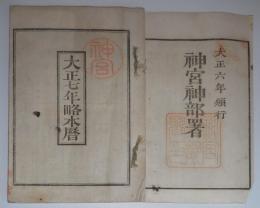 大正六年頒行
神宮神部署
神宮
大正七年略本暦